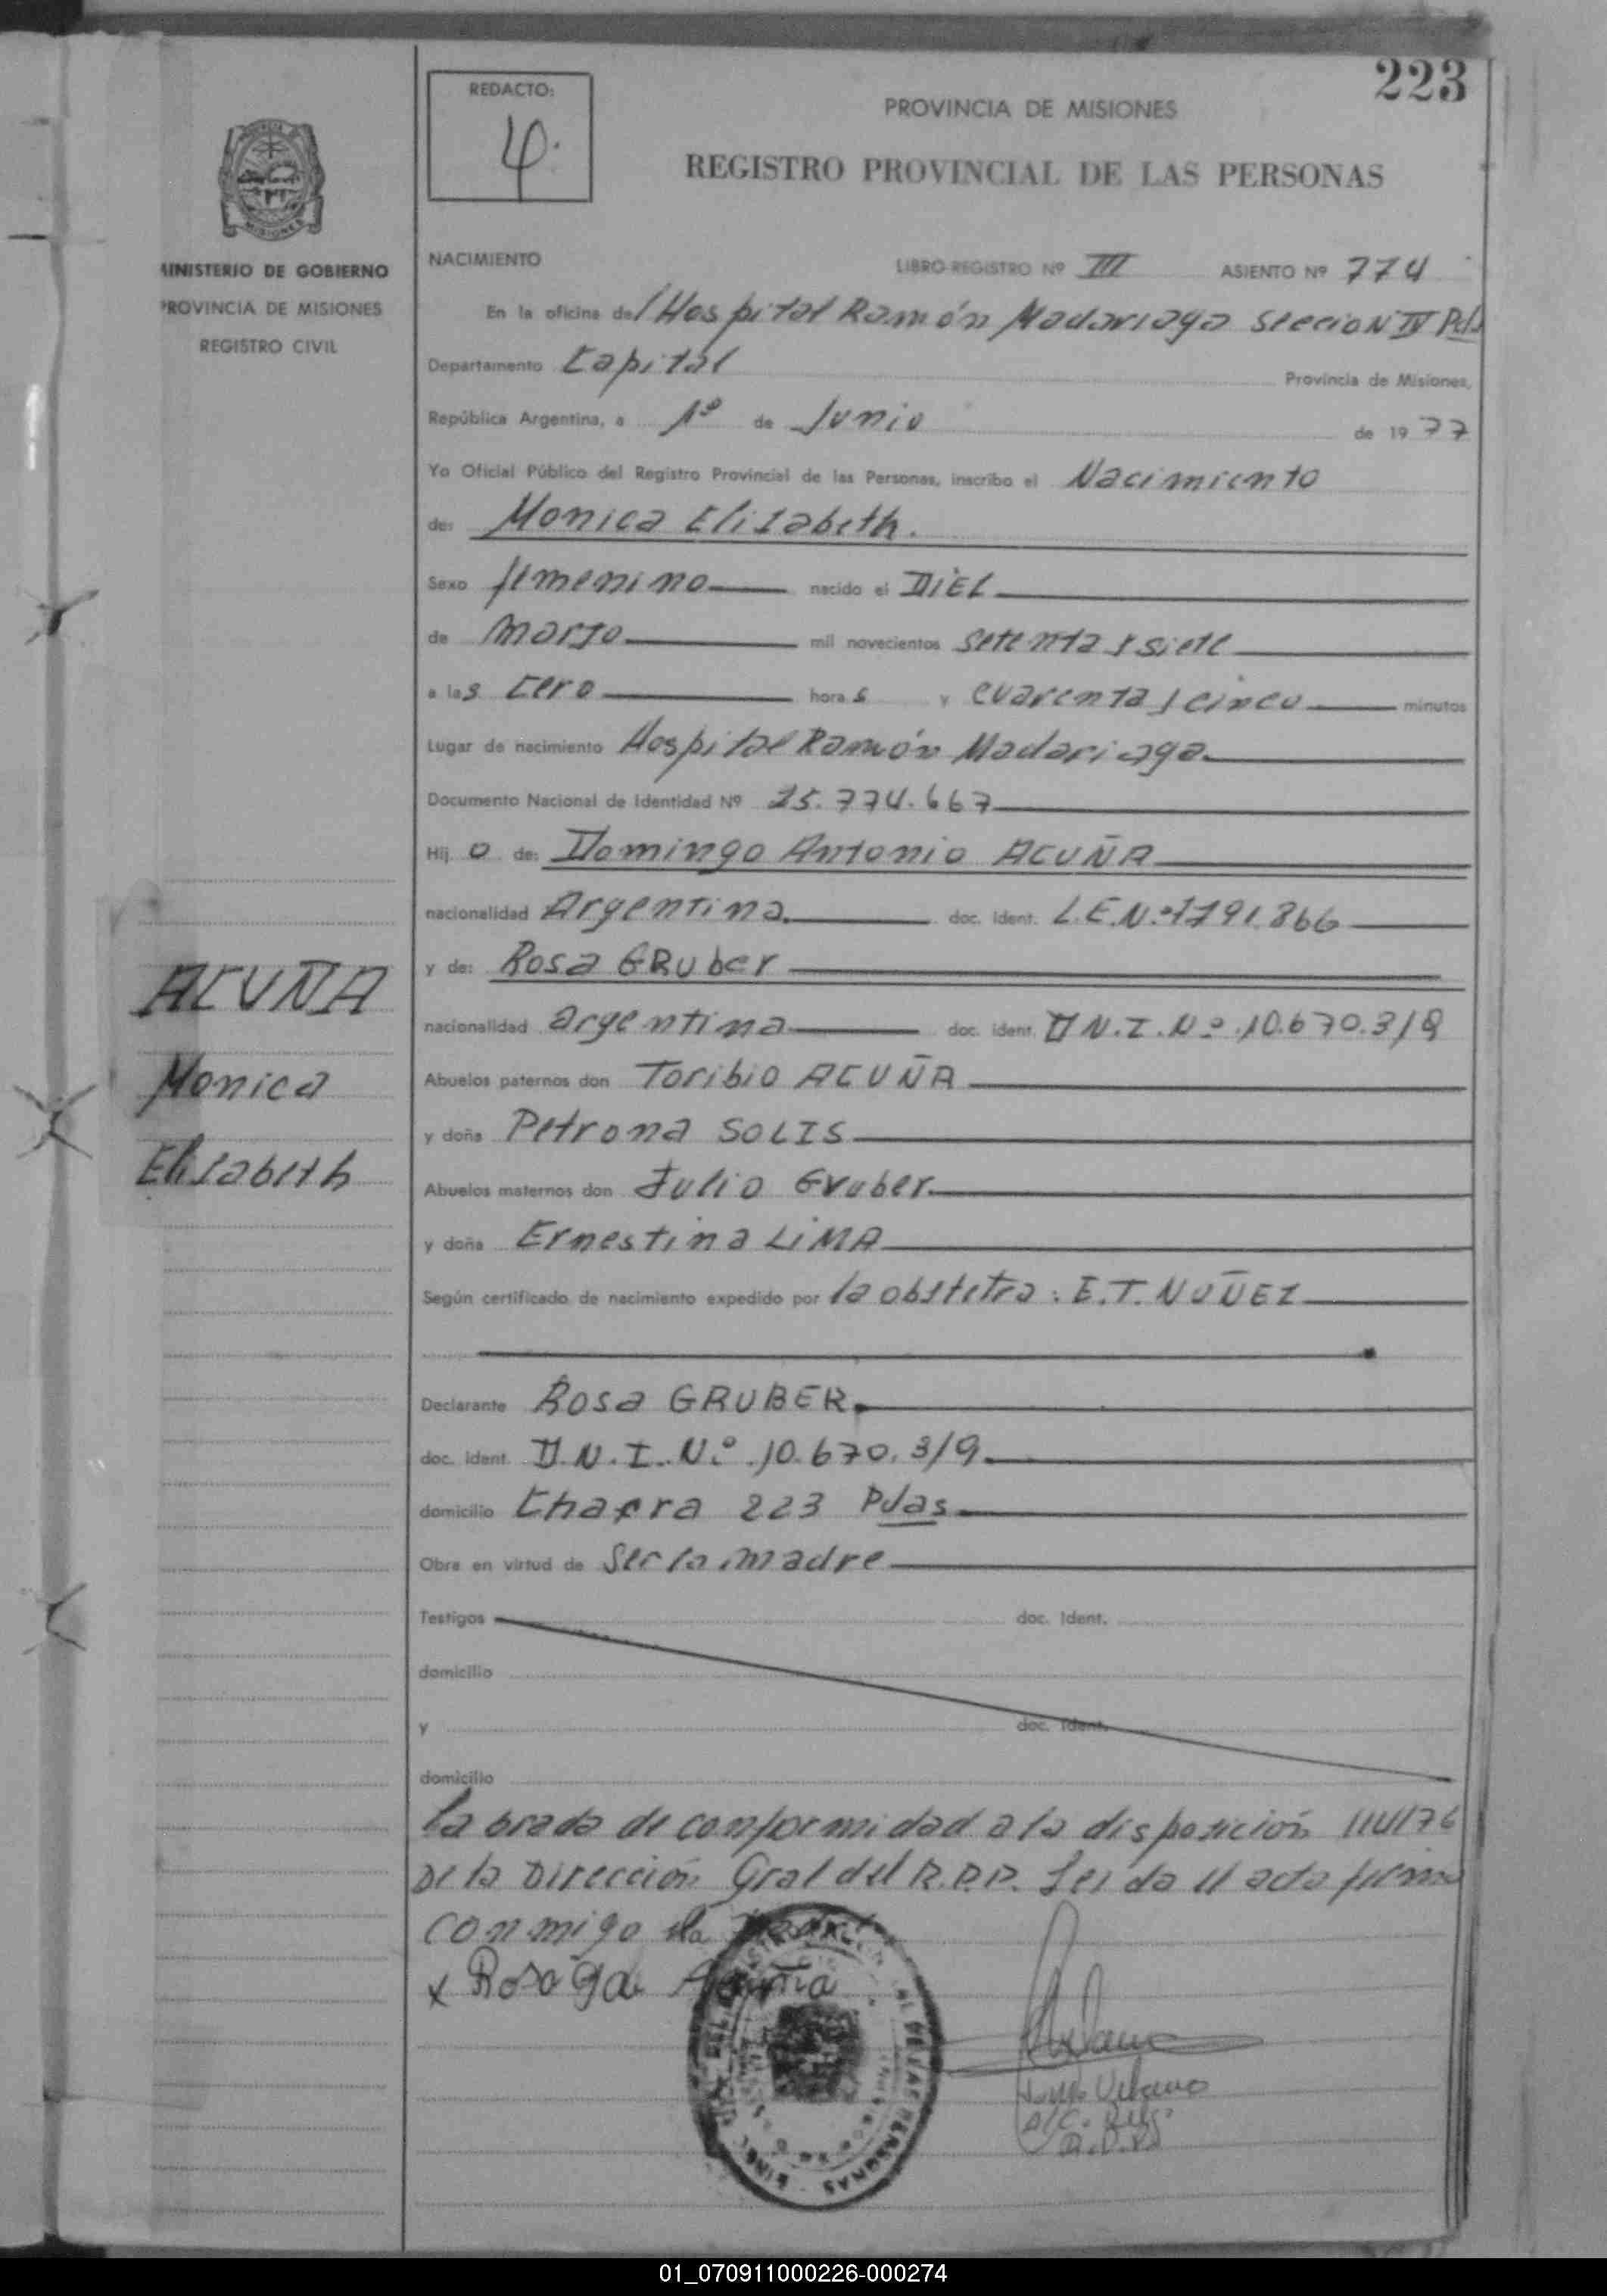 223
REDACTO:
PROVINCIA DE MISIONES
REGISTRO PROVINCIAL DE LAS PERSONAS
MINISTERIO DE GOBIERNO
PROVINCIA DE MISIONES
REGISTRO CIVIL
NACIMIENTO LIBRO-REGISTRO Nº III ASIENTO Nº 774
En la oficina del Hospital Ramón Madariaga Sección IV Pds
Departamento Capital Provincia de Misiones,
República Argentina, a 1º de Junio de 1977
Yo Oficial Público del Registro Provincial de las Personas, inscribo el Nacimiento
de: Monica Elizabeth.
Sexo femenino nacido el DIEZ
de marzo mil novecientos setenta y siete
a las cero horas y cuarenta y cinco minutos
Lugar de nacimiento Hospital Ramón Madariaga
Documento Nacional de Identidad Nº 25.774.667
Hij o de: Domingo Antonio ACUÑA
nacionalidad Argentina doc. Ident. L.E.Nº 1791.866
y de: Rosa GRUber
nacionalidad argentina doc. ident. D.N.I. Nº 10.670.319
Abuelos paternos don Toribio ACUÑA
y doña Petrona SOLIS
Abuelos maternos don Julio Gruber
y doña Ernestina LiMA
Según certificado de nacimiento expedido por la obstetra: E.T. NUÑEZ
Declarante Rosa GRUBER.
doc. ident. D.N.I. Nº 10.670.319.
domicilio Chacra 223 Pdas
Obra en virtud de ser la madre
Testigos doc. Ident.
domicilio
y doc. Ident.
domicilio
Labrada de conformidad a la disposición 114/76
De la Dirección Gral del R.P.P. Leida el acta firma
conmigo la
x Rosa G de Acuña
ACUÑA
Monica
Elizabeth
01_070911000226-000274